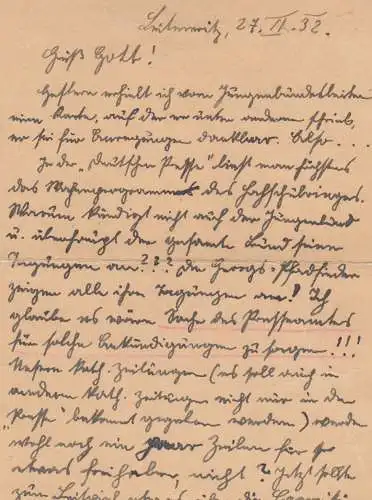 Leitmeritz, 27. II. 32.
Grüß Gott!
Gestern erhielt ich vom Jungenbundesleiter
eine Karte, auf der er unter anderem schrieb,
er sei für Anregungen dankbar. Also . . .
In der „Deutschen Presse" liest man
das Wochenprogramm des Hochschulringes.
Warum kündigt nicht auch der Jungenbund
u. überhaupt der gesamte Bund seine
Tagungen an??? Die Georgs-Pfadfinder
zeigen alle ihre Tagungen an! Ich
glaube es wäre Sache des Presseamtes
für solche Ankündigungen zu sorgen!!!
Unsere kath. Zeitungen (es soll auch in
anderen kath. Zeitungen nicht nur in der
„Presse" bekannt gegeben werden) werden
wohl noch ein paar Zeilen für so
etwas frei haben, nicht? Jetzt sollte
zum Beispiel etwas über die